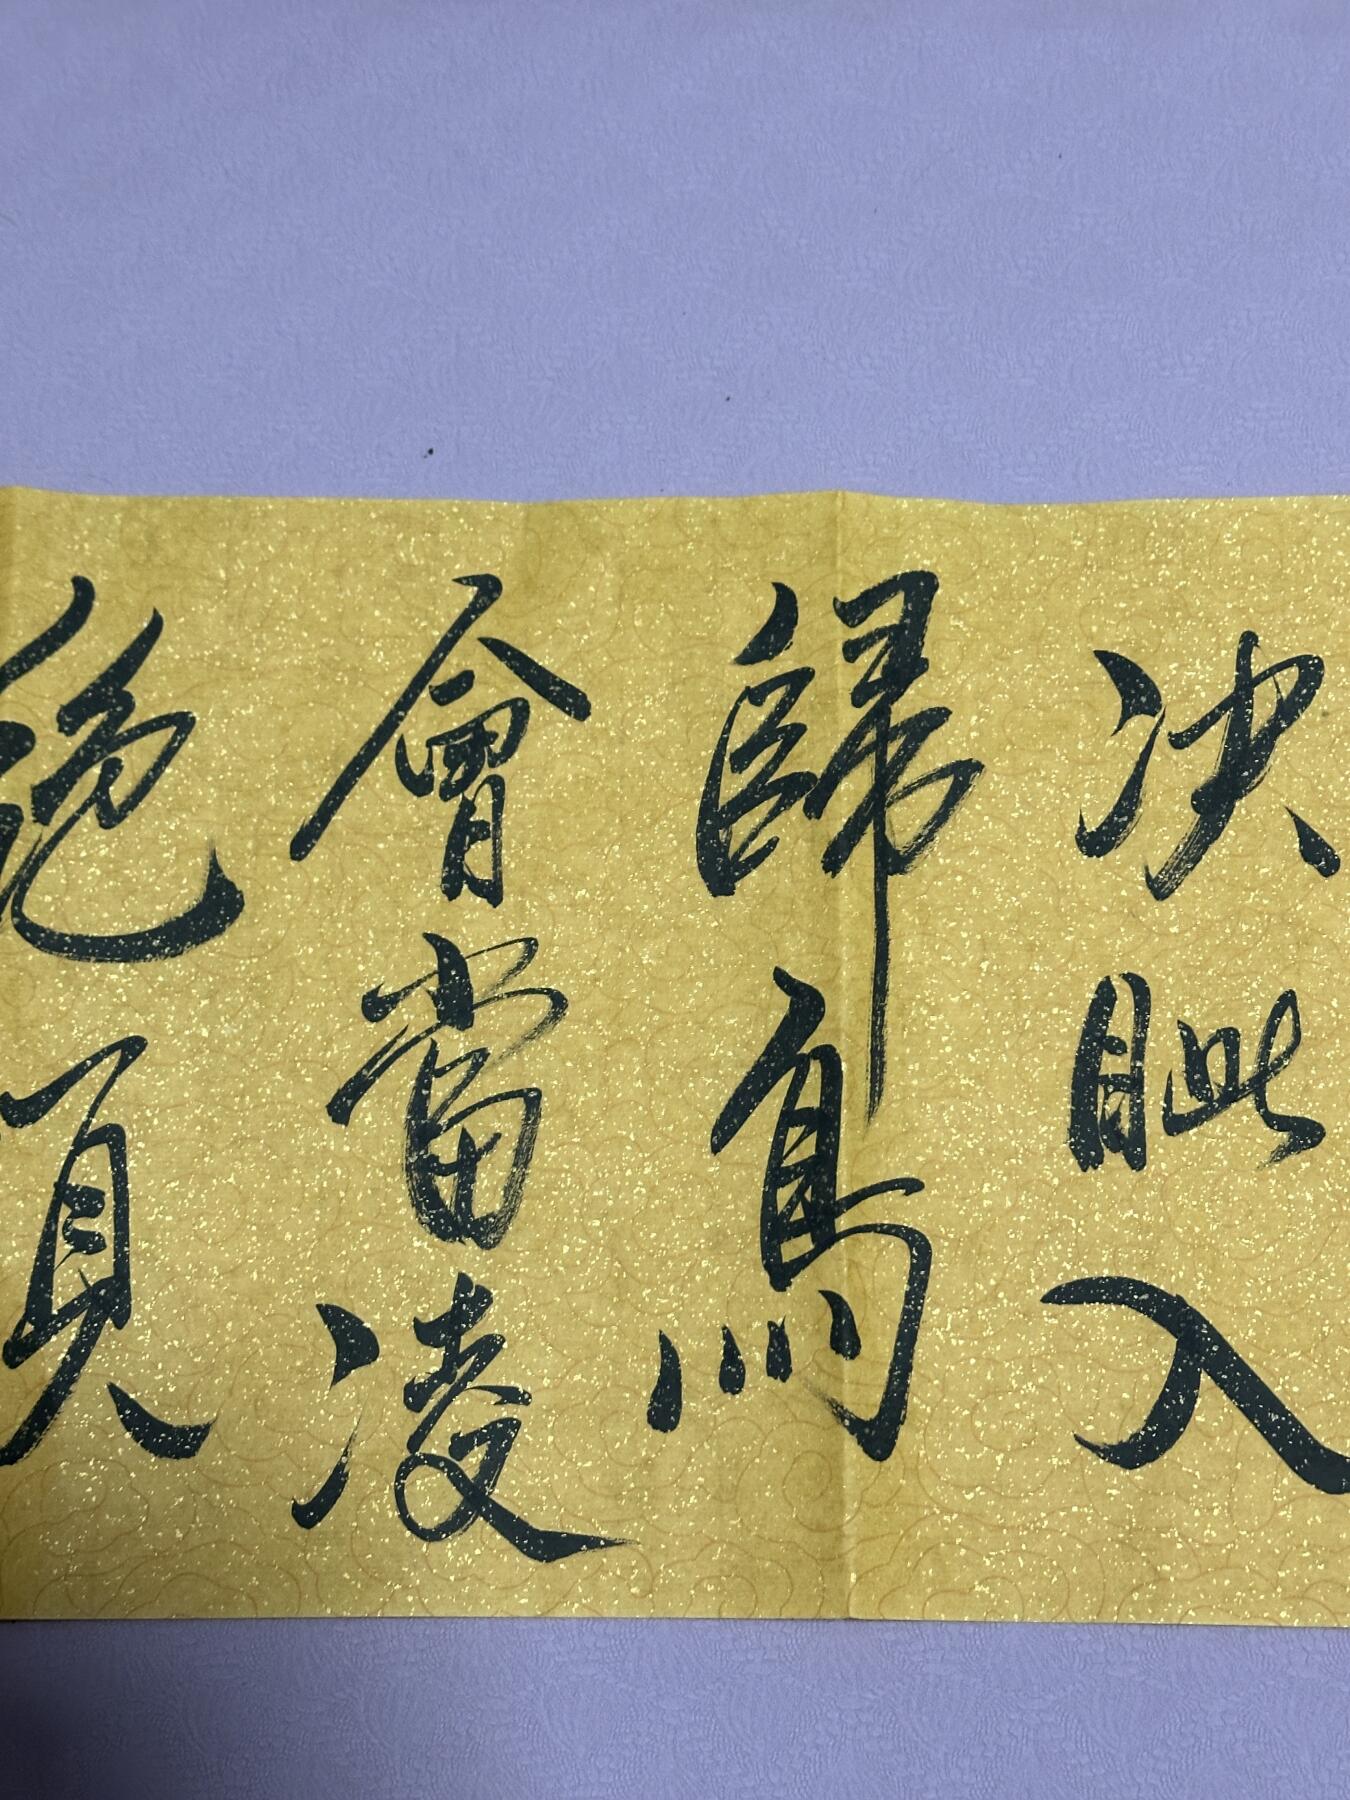 决眦入
歸鳥
會當凌
絶頂